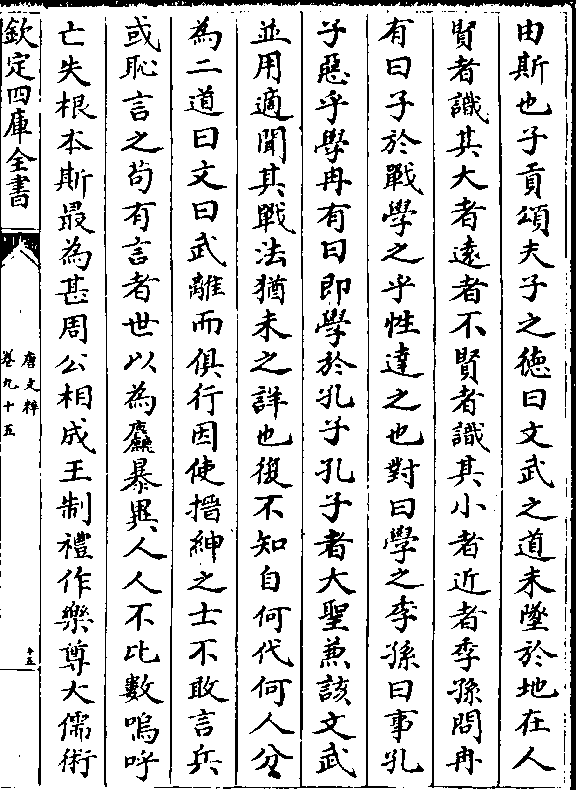 由斯也子貢頌夫子之徳曰文武之道未墜於地在人
賢者識其大者逺者不賢者識其小者近者季孫問冉
有曰子於戰學之乎性達之也對曰學之季孫曰事孔
子惡乎學冉有曰即學於孔子孔子者大聖兼該文武
並用適聞其戰法猶未之詳也復不知自何代何人分
為二道曰文曰武離而俱行因使搢紳之士不敢言兵
或恥言之茍有言者世以為麤暴異人人不比數嗚呼
亡失根本斯最為甚周公相成王制禮作樂尊大儒術
欽定四庫全書
唐文粹
卷九十五
十五